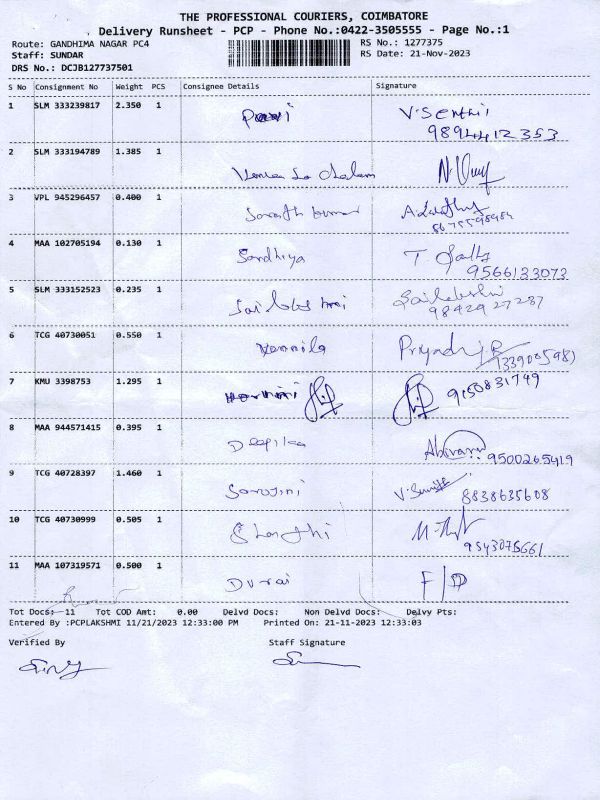 THE PROFESSIONAL COURIERS, COIMBATORE
Delivery Runsheet - PCP - Phone No.:0422-3505555 - Page No.:1
Route: GANDHIMA NAGAR PC4
RS No.: 1277375
Staff: SUNDAR
RS Date: 21-Nov-2023
DRS No.: DCJB127737501
S No Consignment No Weight PCS Consignee Details Signature
1 SLM 333239817 2.350 1 V.Senthil
9894412353
2 SLM 333194789 1.385 1
3 VPL 945296457 0.400 1 Sarath kumar
4 MAA 102705194 0.130 1 Sandhiya
9566133073
5 SLM 333152523 0.235 1
9842927287
6 TCG 40730051 0.550 1 Vennila
7 KMU 3398753 1.295 1 9150831749
8 MAA 944571415 0.395 1 Deepikaa
9500265419
9 TCG 40728397 1.460 1 Sarojini
8838635608
10 TCG 40730999 0.505 1 Shanthi
11 MAA 107319571 0.500 1 Durai
Tot Docs: 11 Tot COD Amt: 0.00 Delvd Docs: Non Delvd Docs: Delvy Pts:
Entered By :PCPLAKSHMI 11/21/2023 12:33:00 PM Printed On: 21-11-2023 12:33:03
Verified By Staff Signature